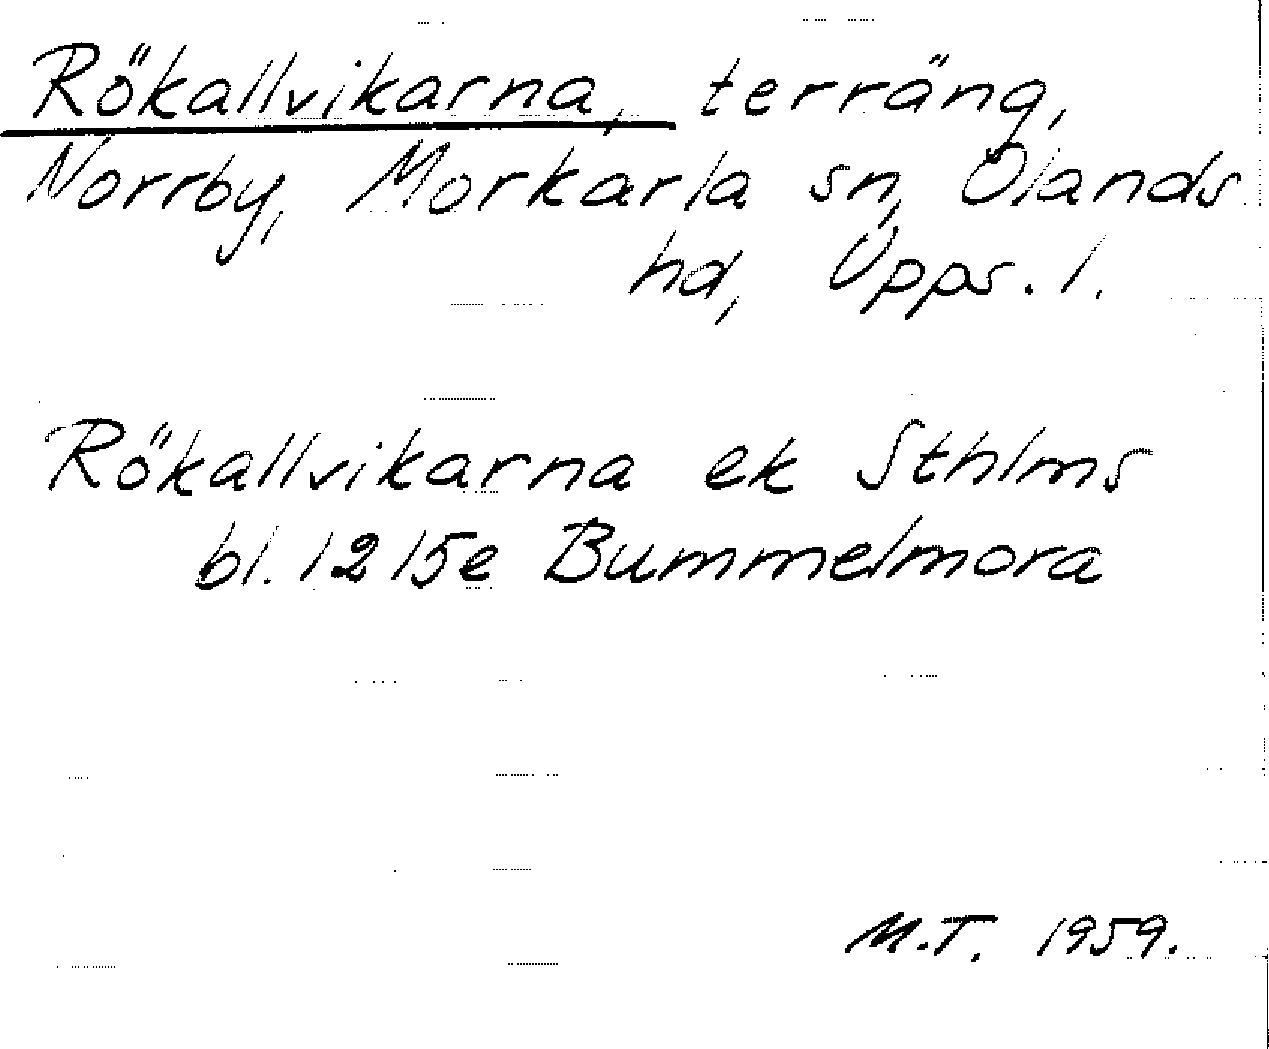 Rökallvikarna, terräng,
Norrby, Morkarla sn, Ölands
hd, Upps. l.
Rökallvikarna ek Sthlms
bl. 12 I5e Bummelmora
M.T. 1959.